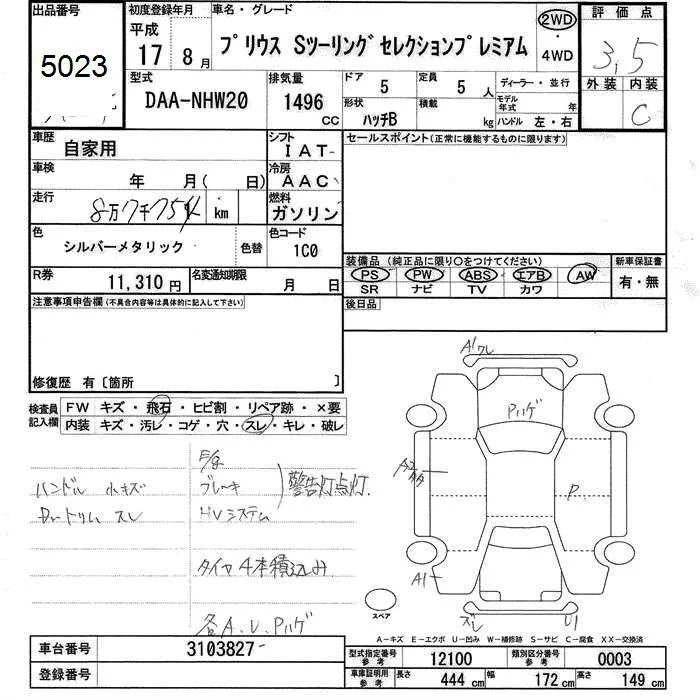 出品番号
5023
初度登録年月
平成
17 8月
車名・グレード
プリウス Sツーリングセレクションプレミアム
2WD
4WD
評価点
3,5
外装 内装
C
型式
DAA-NHW20
排気量
1496
CC
ドア
5
定員
5人
ディーラー・並行
形状
ハッチB
積載
kg
モデル年式 年
ハンドル 左・右
車歴
自家用
シフト
IAT
セールスポイント(正常に機能するものに限ります)
車検
年 月( 日)
冷房
AAC
走行
8万7千75 km
燃料
ガソリン
色
シルバーメタリック
色替
色コード
1C0
装備品(純正品に限り○をつけてください)
PS PW ABS エアB AW
SR ナビ TV カワ
新車保証書
有・無
R券
11,310円
名変通知期限
月 日
後日品
注意事項申告欄(不具合内容等は具体的に記入して下さい)
修復歴 有〔箇所 〕
検査員記入欄
FW キズ・飛石・ヒビ割・リペア跡・×要
内装 キズ・汚レ・コゲ・穴・スレ・キレ・破レ
ハンドル 小キズ
Drトリム スレ
ブレーキ
HVシステム
警告灯点灯
タイヤ4本積込み
各A、U、Pハゲ
A1ワレ
Pハゲ
P
A1
ズレ
U1
スペア
A−キズ E−エクボ U−凹み W−補修跡 S−サビ C−腐食 XX−交換済
車台番号
3103827-
登録番号
型式指定番号
参考
12100
類別区分番号
参考
0003
車庫証明用
参考
長さ
444cm
幅
172cm
高さ
149cm